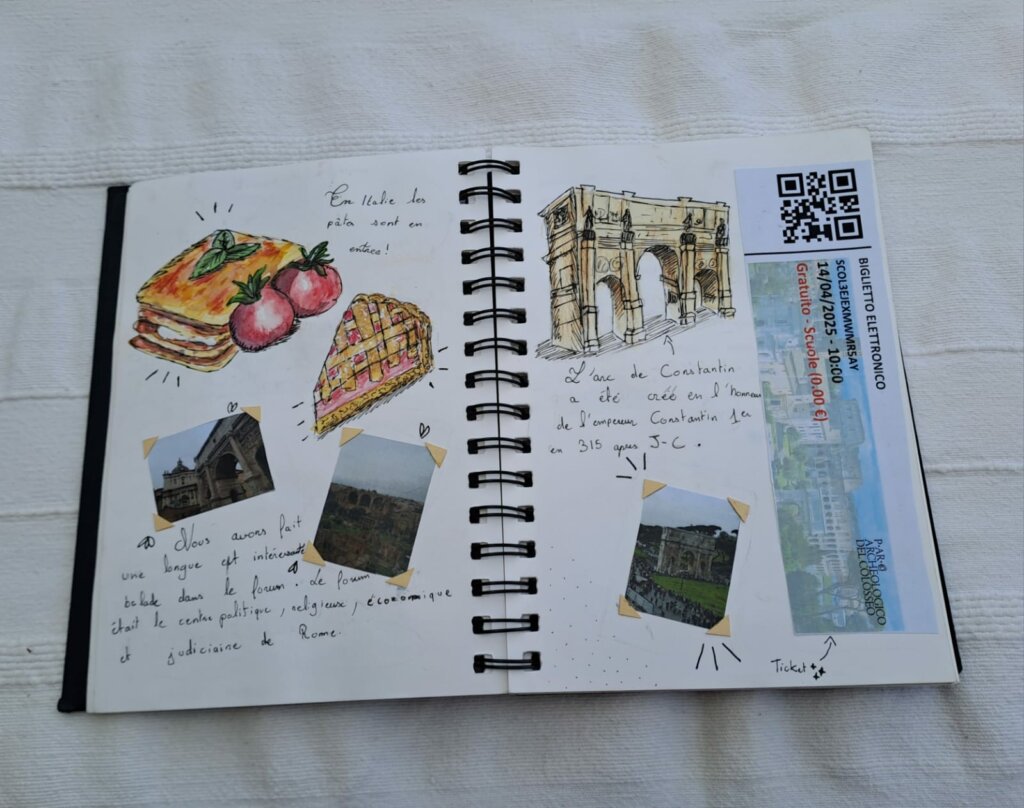 En Italie les
pâtes sont en
entrée !
Nous avons fait
une longue et intéressante
balade dans le forum. Le forum
était le centre politique, religieuse, économique
et judiciaire de Rome.
L'arc de Constantin
a été créé en l'honneur
de l'empereur Constantin 1er
en 315 apres J-C.
BIGLIETTO ELETTRONICO
SCOL3EJEXMWMR5AY
14/04/2025 - 10:00
Gratuito - Scuole (0.00 €)
P·AR·CO
ARCHEOLOGICO
DEL COLOSSEO
Ticket